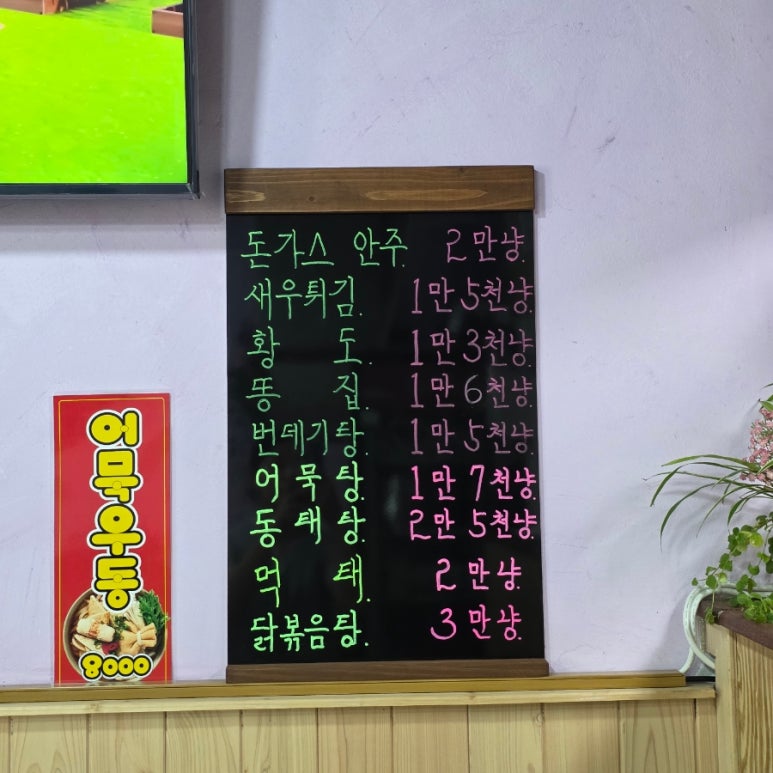 돈가스 안주. 2만냥.
새우튀김. 1만 5천냥.
황 도. 1만 3천냥.
똥 집. 1만 6천냥.
번데기탕. 1만 5천냥.
어묵탕. 1만 7천냥.
동태탕. 2만 5천냥.
먹 태. 2만냥.
닭볶음탕. 3만냥.
어묵우동
8000